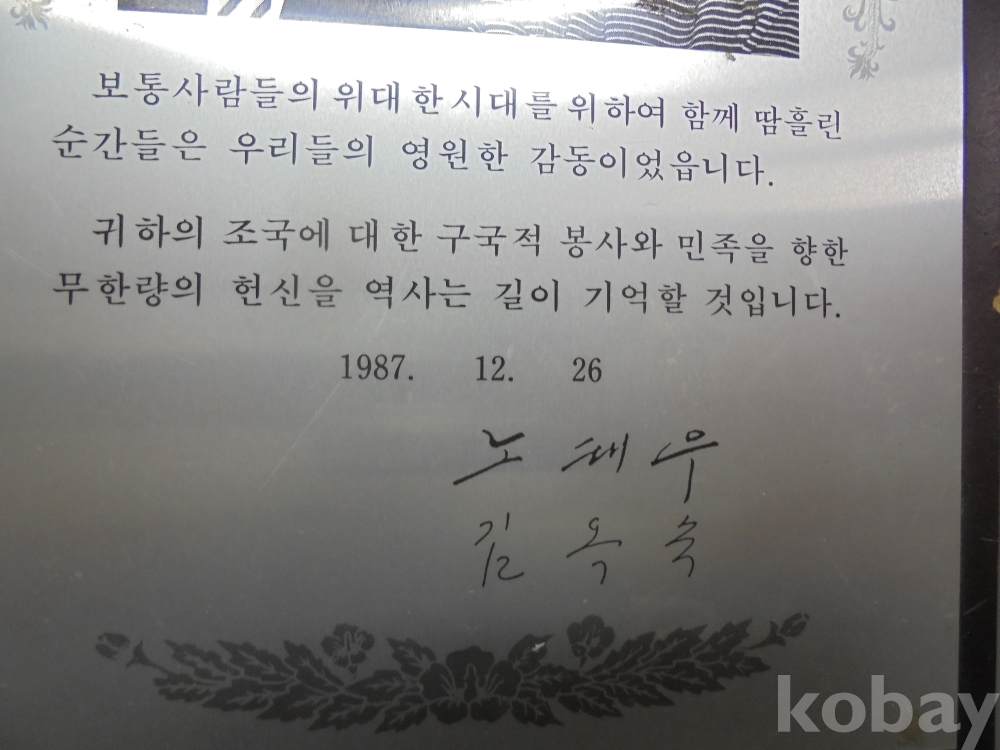 보통사람들의 위대한 시대를 위하여 함께 땀흘린
순간들은 우리들의 영원한 감동이었읍니다.
귀하의 조국에 대한 구국적 봉사와 민족을 향한
무한량의 헌신을 역사는 길이 기억할 것입니다.
1987. 12. 26
노태우
김옥숙
kobay